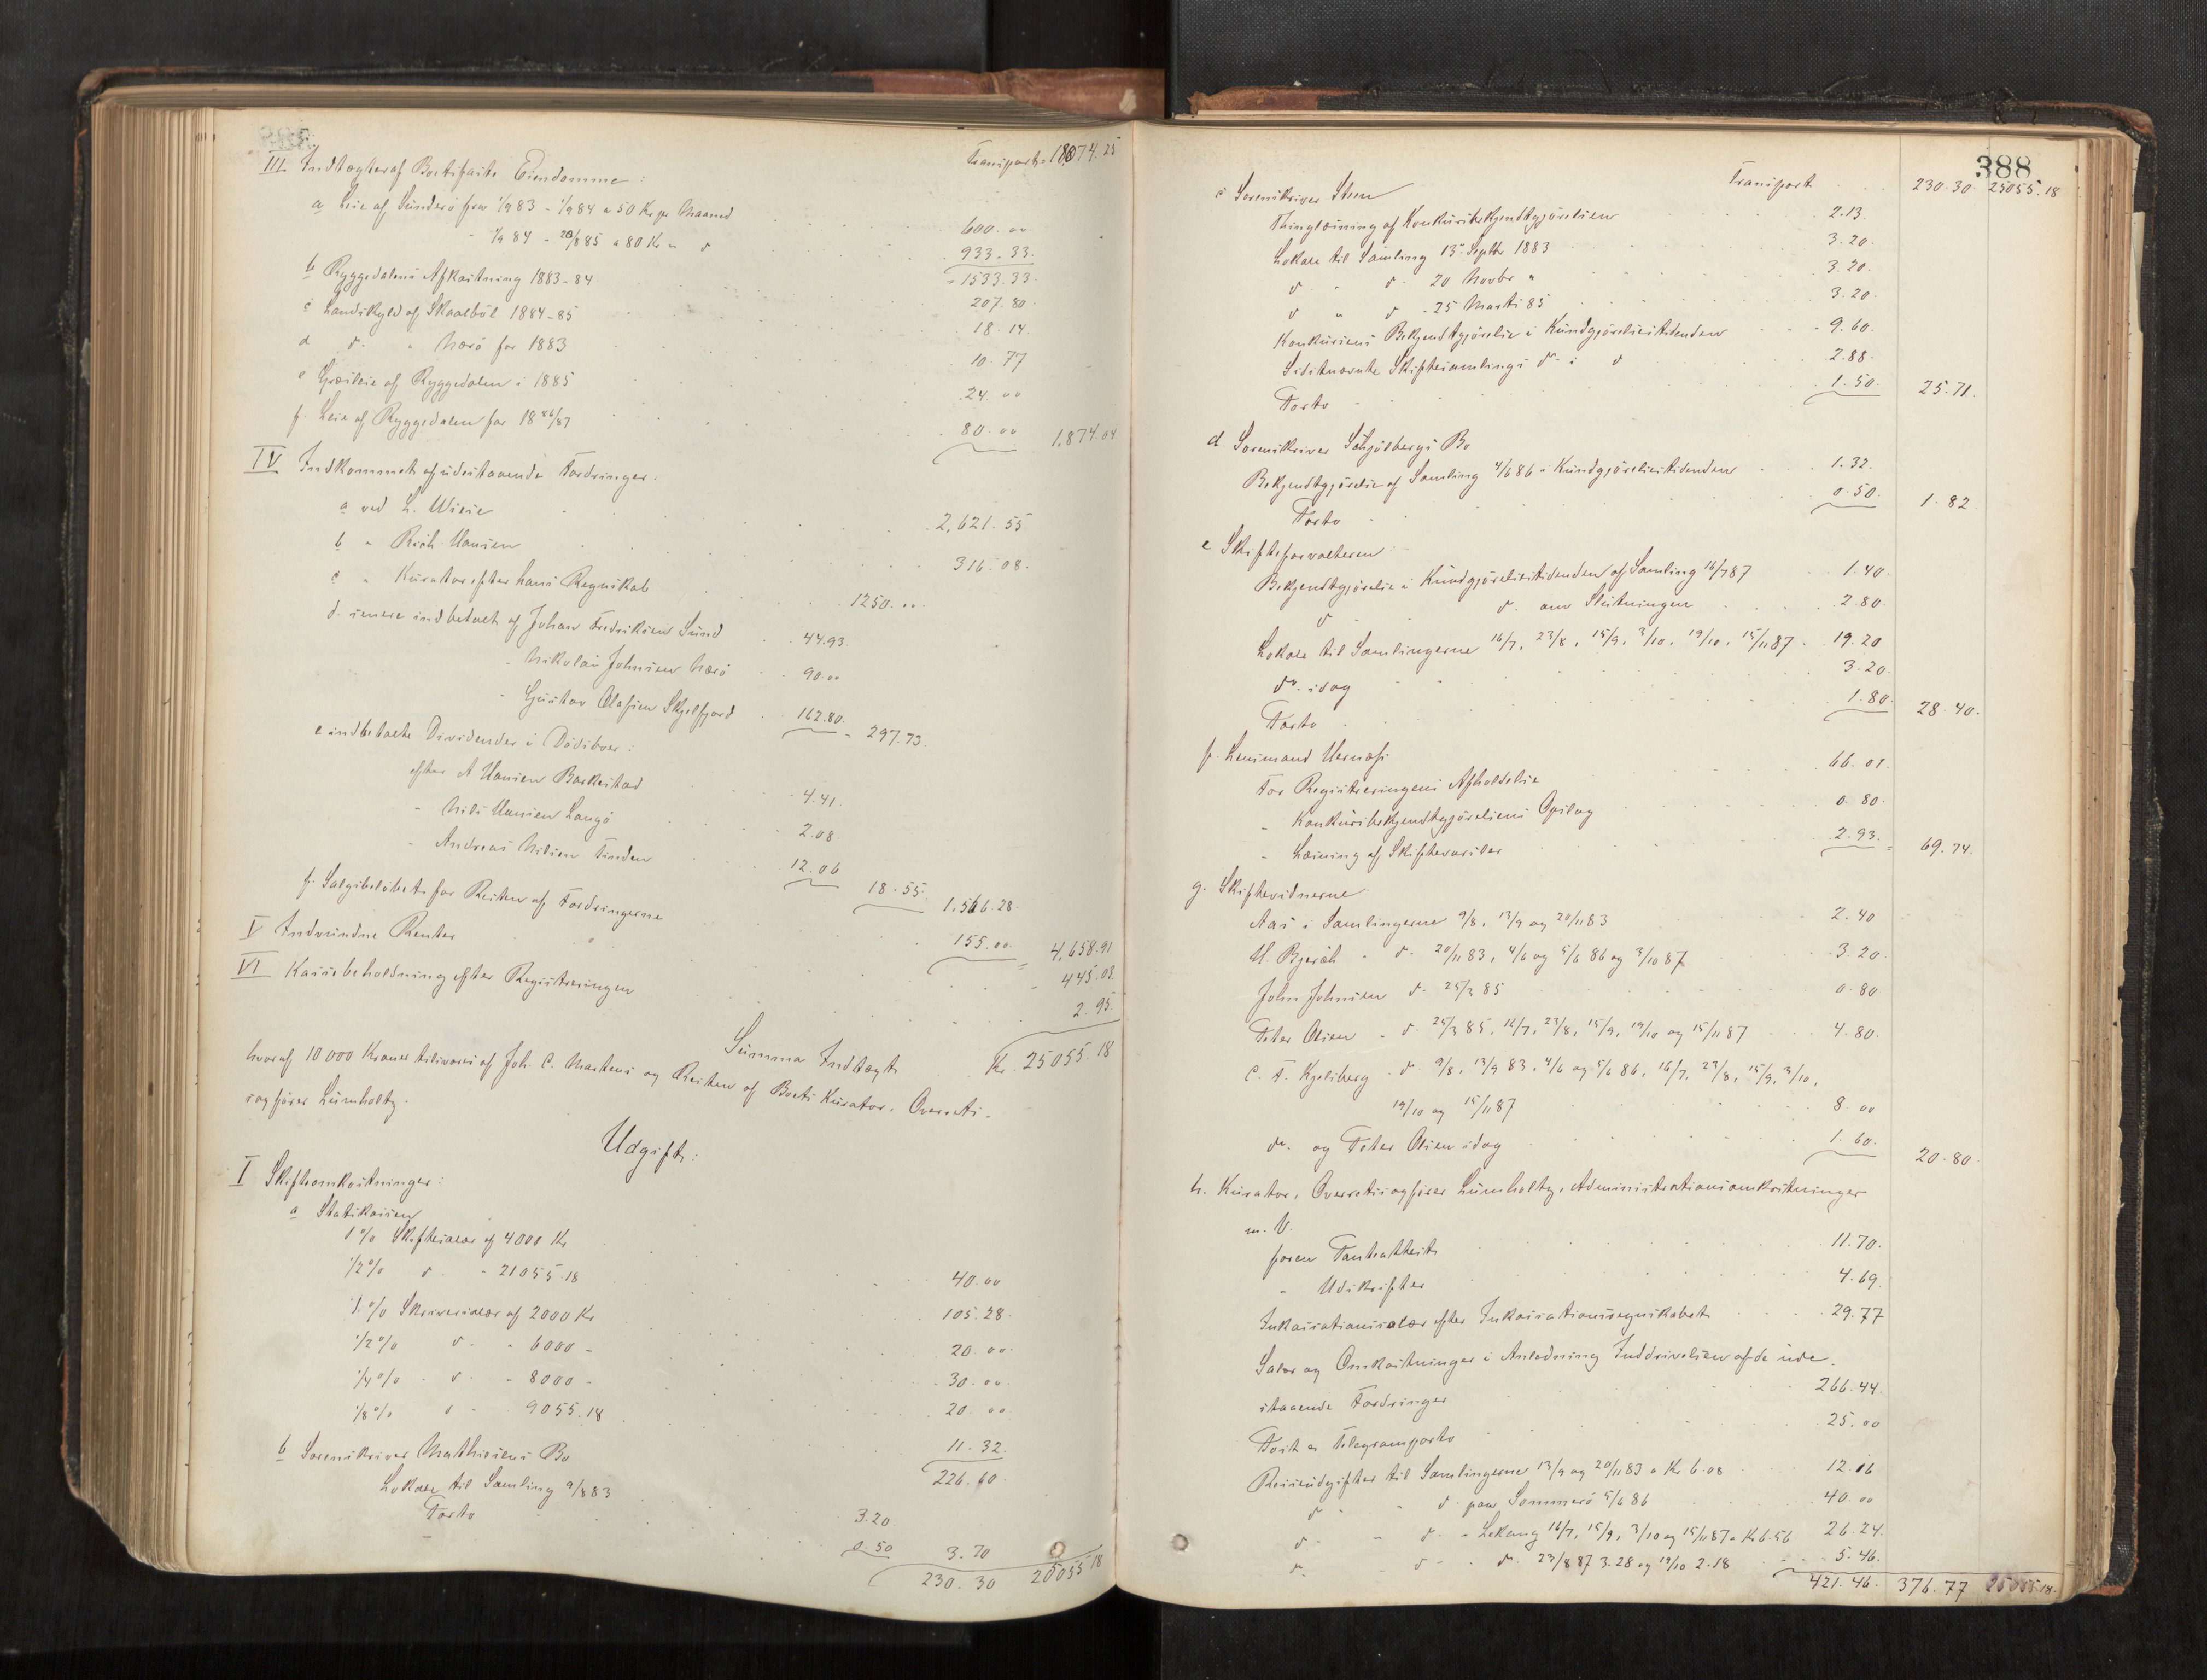 Transport 18,074.25
III Indtægter af Boets faste Eiendomme:
a Leie af Sünderö fra 1/9 83 - 1/9 84 a 50 Kr pr Maaned 600.00
" 1/9 84 - 20/8 85 a 80 Kr " d 933.33.
= 1533.33.
b Ryggedalens Afkastning 1883-84 207.80
c Landskyld af Skaalböl 1884-85 18.14.
d do " Nærö for 1883 10.77
e Græsleie af Ryggedalen i 1885 24.00
f. Leie af Ryggedalen for 1886/87 80.00 1,874.04
IV Indkommet af udestaaende Fordringer:
a ved L. Wiese 2,621.55
b " Rich. Hansen 316.08.
c " Kurator efter hans Regnskab 1250.00
d. senere indbetalt af Johan Fredriksen Sund 44.93.
" Nikolai Johnsen Nærö 90.00
" Gustav Olafsen Skjelfjord 162.80. = 297.73.
e indbetalte Dividender i Dödsboer:
efter A Hansen Barkestad 4.41.
" Nils Hansen Langö 2.08
" Andreas Nilsen Tinden 12.06 18.55. 1,566.28
f. Salgsbelöbet for Resten af Fordringerne 155.00 = 4,658.91
V Indvundne Renter 445.03.
VI Kassebeholdning efter Registreringen 2.95
Summa Indtægt Kr. 25055.18
hvoraf 10000 Kroner tilsvares af Joh. C. Martens og Resten af Boets Kurator, Overrets-
sagförer Lumholtz.
Udgift:
I Skifteomkostninger:
a Statskassen
1 % Skiftesalær af 4000 Kr 40.00
1/2 % d " 21055.18 105.28
1 % Skriversalær af 2000 Kr 20.00
1/2 % d. " 6000 - 30.00
1/4 % d. " 8000 - 20.00
1/8 % d " 9055.18 11.32.
226.60.
b Sorenskriver Mathiesens Bo
Lokale til Samling 9/8 83 3.20
Porto 0.50 3.70
230.30 25055.18
388
Transport 230.30 25055.18
c Sorenskriver Steen
Thinglæsning af Konkursbekjendtgjörelsen 2.13.
Lokale til Samling 13 Septbr 1883 3.20.
d " d 20 Novbr " 3.20.
d " d - 25 Marts 85 3.20.
Konkursens Bekjendtgjörelse i Kundgjörelsestidenden 9.60.
Sidstnævnte Skiftesamlings do i d 2.88.
Porto 1.50. 25.71.
d Sorenskriver Schjölbergs Bo
Bekjendtgjörelse af Samling 4/6 86 i Kundgjörelsestidenden 1.32.
Porto 0.50. 1.82
e Skifteforvalteren:
Bekjendtgjörelse i Kundgjörelsestidenden af Samling 16/7 87 1.40.
d d. om Slutningen 2.80
Lokale til Samlingerne 16/7, 23/8, 15/9, 3/10, 19/10, 15/11 87 19.20
do idag 3.20
Porto 1.80. 28.40.
f. Lensmand Hernæs
For Registreringens Afholdelse 66.01.
" Konkursbekjendtgjörelsens Opslag 0.80.
" Læsning af Skiftevarsler 2.93. = 69.74.
g. Skiftevidnerne
Aas i Samlingerne 9/8, 13/9 og 20/11 83 2.40
H. Bjerck " d. 20/11 83, 4/6 og 5/6 86 og 3/10 87 3.20
John Johnsen d. 25/3 85 0.80.
Peter Olsen " d. 25/3 85, 16/7, 23/8, 15/9, 19/10 og 15/11 87 4.80.
C. F. Kjelsberg - d 9/8, 13/9 83, 4/6 og 5/6 86, 16/7, 23/8, 15/9, 3/10,
19/10 og 15/11 87 8.00
do. og Peter Olsen idag 1.60. 20.80.
h. Kurator, Overretssagförer Lumholtz, Administrationsomkostninger
m. V.
foren Panteattest 11.70.
" Udskrifter 4.69.
Inkassationssalær efter Inkassationsregnskabet 29.77
Salær og Omkostninger i Anledning Inddrivelsen af de ude-
staaende Fordringer 266.44.
Post & Telegramporto 25.00
Reiseudgifter til Samlingerne 13/9 og 20/11 83 a Kr 6.08 12.16
d " d. paa Sommerö 5/6 86 40.00
d " d. " Lekang 16/7, 15/9, 3/10 og 15/11 87 a Kr 6.56 26.24.
d. " d " d. 23/8 87 3.28 og 19/10 2.18 5.46.
421.46. 376.77 25055.18.